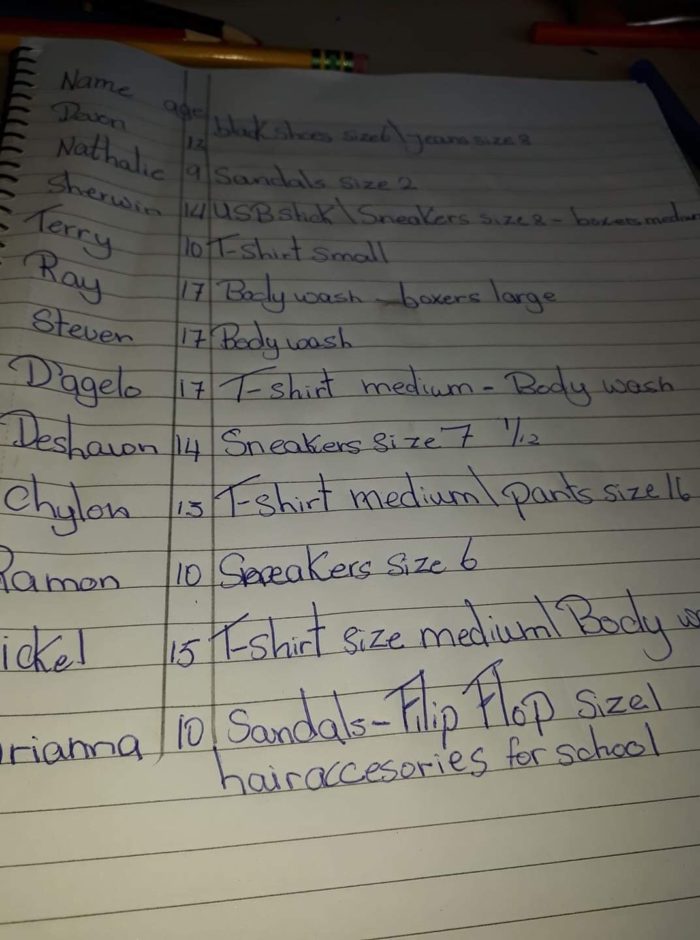 Name age
Devon 12 black shoes size 6\jeans size 8
Nathalie 9 Sandals size 2
Sherwin 14 USB stick\Sneakers size 8 - boxers medium
Terry 10 T-shirt small
Ray 17 Body wash - boxers large
Steven 17 Body wash
D'agelo 17 T-shirt medium - Body wash
Deshawon 14 Sneakers size 7 1/2
Chylon 13 T-shirt medium\pants size 16
Ramon 10 Sneakers size 6
ickel 15 T-shirt size medium\Body wa
rianna 10 Sandals - Flip Flop size 1
hairaccesories for school